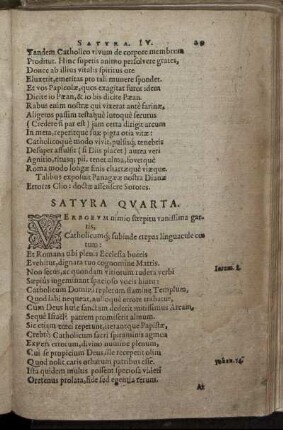 SATYRA. IV.
Tandem Catholico vivum de corpore membrum
Proditur. Hinc superis animo persolvere grates,
Donec ab illius vitalis spiritus ore
Eluxerit, emeritas pro tali munere spondet.
Et vos Papicolæ, quos exagitat furor idem
Dicite io Pæan, & io bis dicite Pæan.
Rabus enim nostræ qui vixerat ante farinæ,
Aligeros passim testatus
(Credere si par est) jam certa dirigit arcum
In meta, repetitque suæ pia otia vitæ:
Catholiconque modo vivit,
Desuper afflasse (si Diis placet) aurea veri
Agnitio,
Roma modo longæ finis chartæque viæque.
Talibus exposuit Panagææ nostra Dianæ
Errores Clio: doctæ assendere Sorores.
SATYRA QVARTA.
VERBORVM nimio strepitu vanissima garris,
Catholicumque subinde crepas linguacule cœtum:
Et Romana tibi plenis Ecclesia buccis
Evehitur, dignata tuo cognomine Mattis.
Non secus, ac quondam vitiorum rudera verbi
Suppliciis ingeminant speciosa vocis hiatu
Catholicum Domini repletum flamine Templum,
Quod labi nequeat, nulloque errore trahatur,
Cum Deus huic sanctam dederit missurus Aram,
Seque Israël patrem promiserit almum.
Sic etiam
Crebro Catholicum sacri spiraminis agmen
Expers errorum, divino munine plenum,
Cui se propicium Deus ille recepent olim
Quod nolit caris orbatum patribus esse.
Ista quidem multus possent speciosa videri
Oretenus prolata, side sed egentia rerum.
At